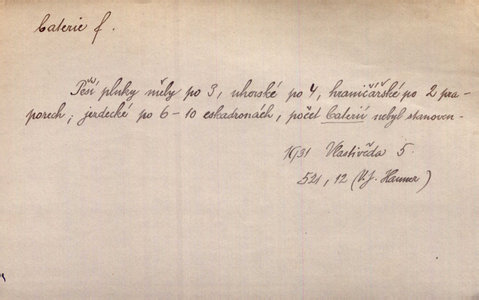 Baterie f.
Pěší pluky měly po 3, uherské po 4, hraničářské po 2 pra-
porech, jezdecké po 6-10 eskadronách, počet baterií nebyl stanoven -
Vlastivěda 5.
521, 12 (V.J. Hauner)